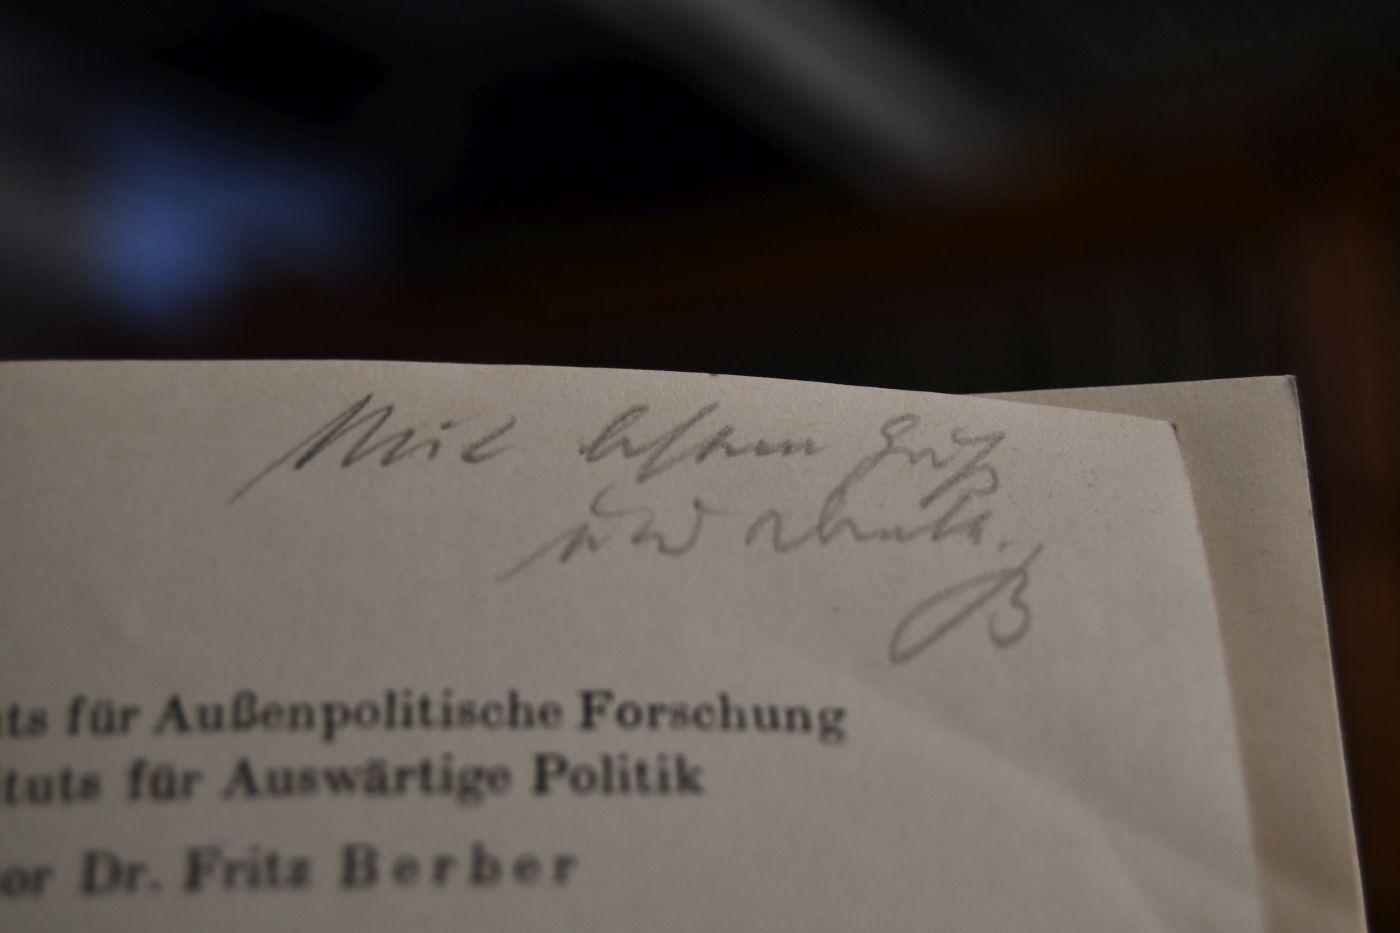 Mit bestem Gruß
und Dank.
B
ts für Außenpolitische Forschung
ituts für Auswärtige Politik
or Dr. Fritz Berber